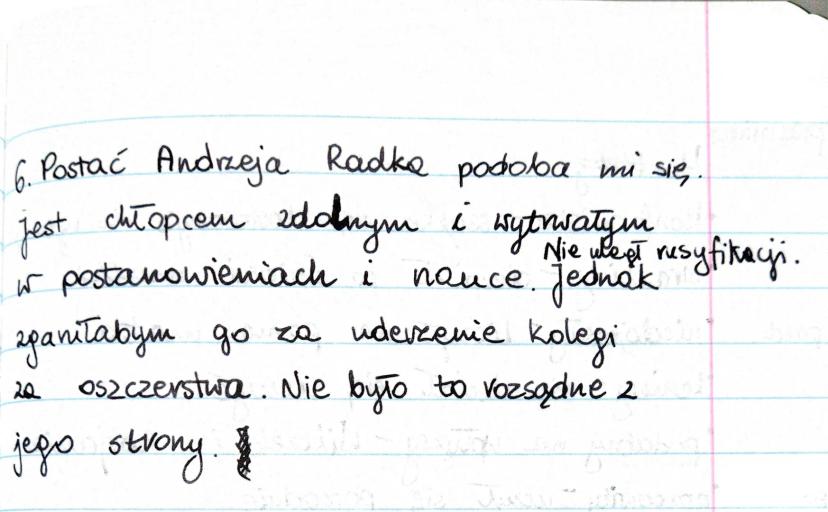 6. Postać Andrzeja Radka podoba mi się.
jest chłopcem zdolnym i wytrwałym
Nie uległ rusyfikacji.
w postanowieniach i nauce. Jednak
zganiłabym go za uderzenie kolegi
za oszczerstwa. Nie było to rozsądne z
jego strony.